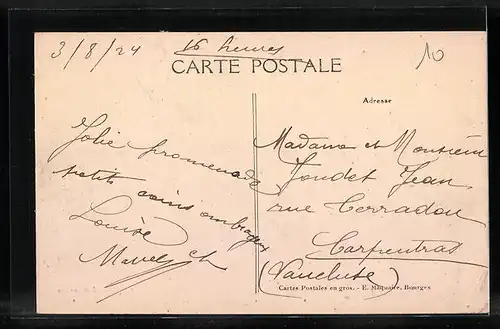 3/8/24 16 heures
10
CARTE POSTALE
Adresse
Jolie promenade
petits coins ombragés
Louise
Madame et Monsieur
Joudet Jean
rue Terradou
Carpentras
(Vaucluse)
Cartes Postales en gros. - E. Maquaire, Bourges